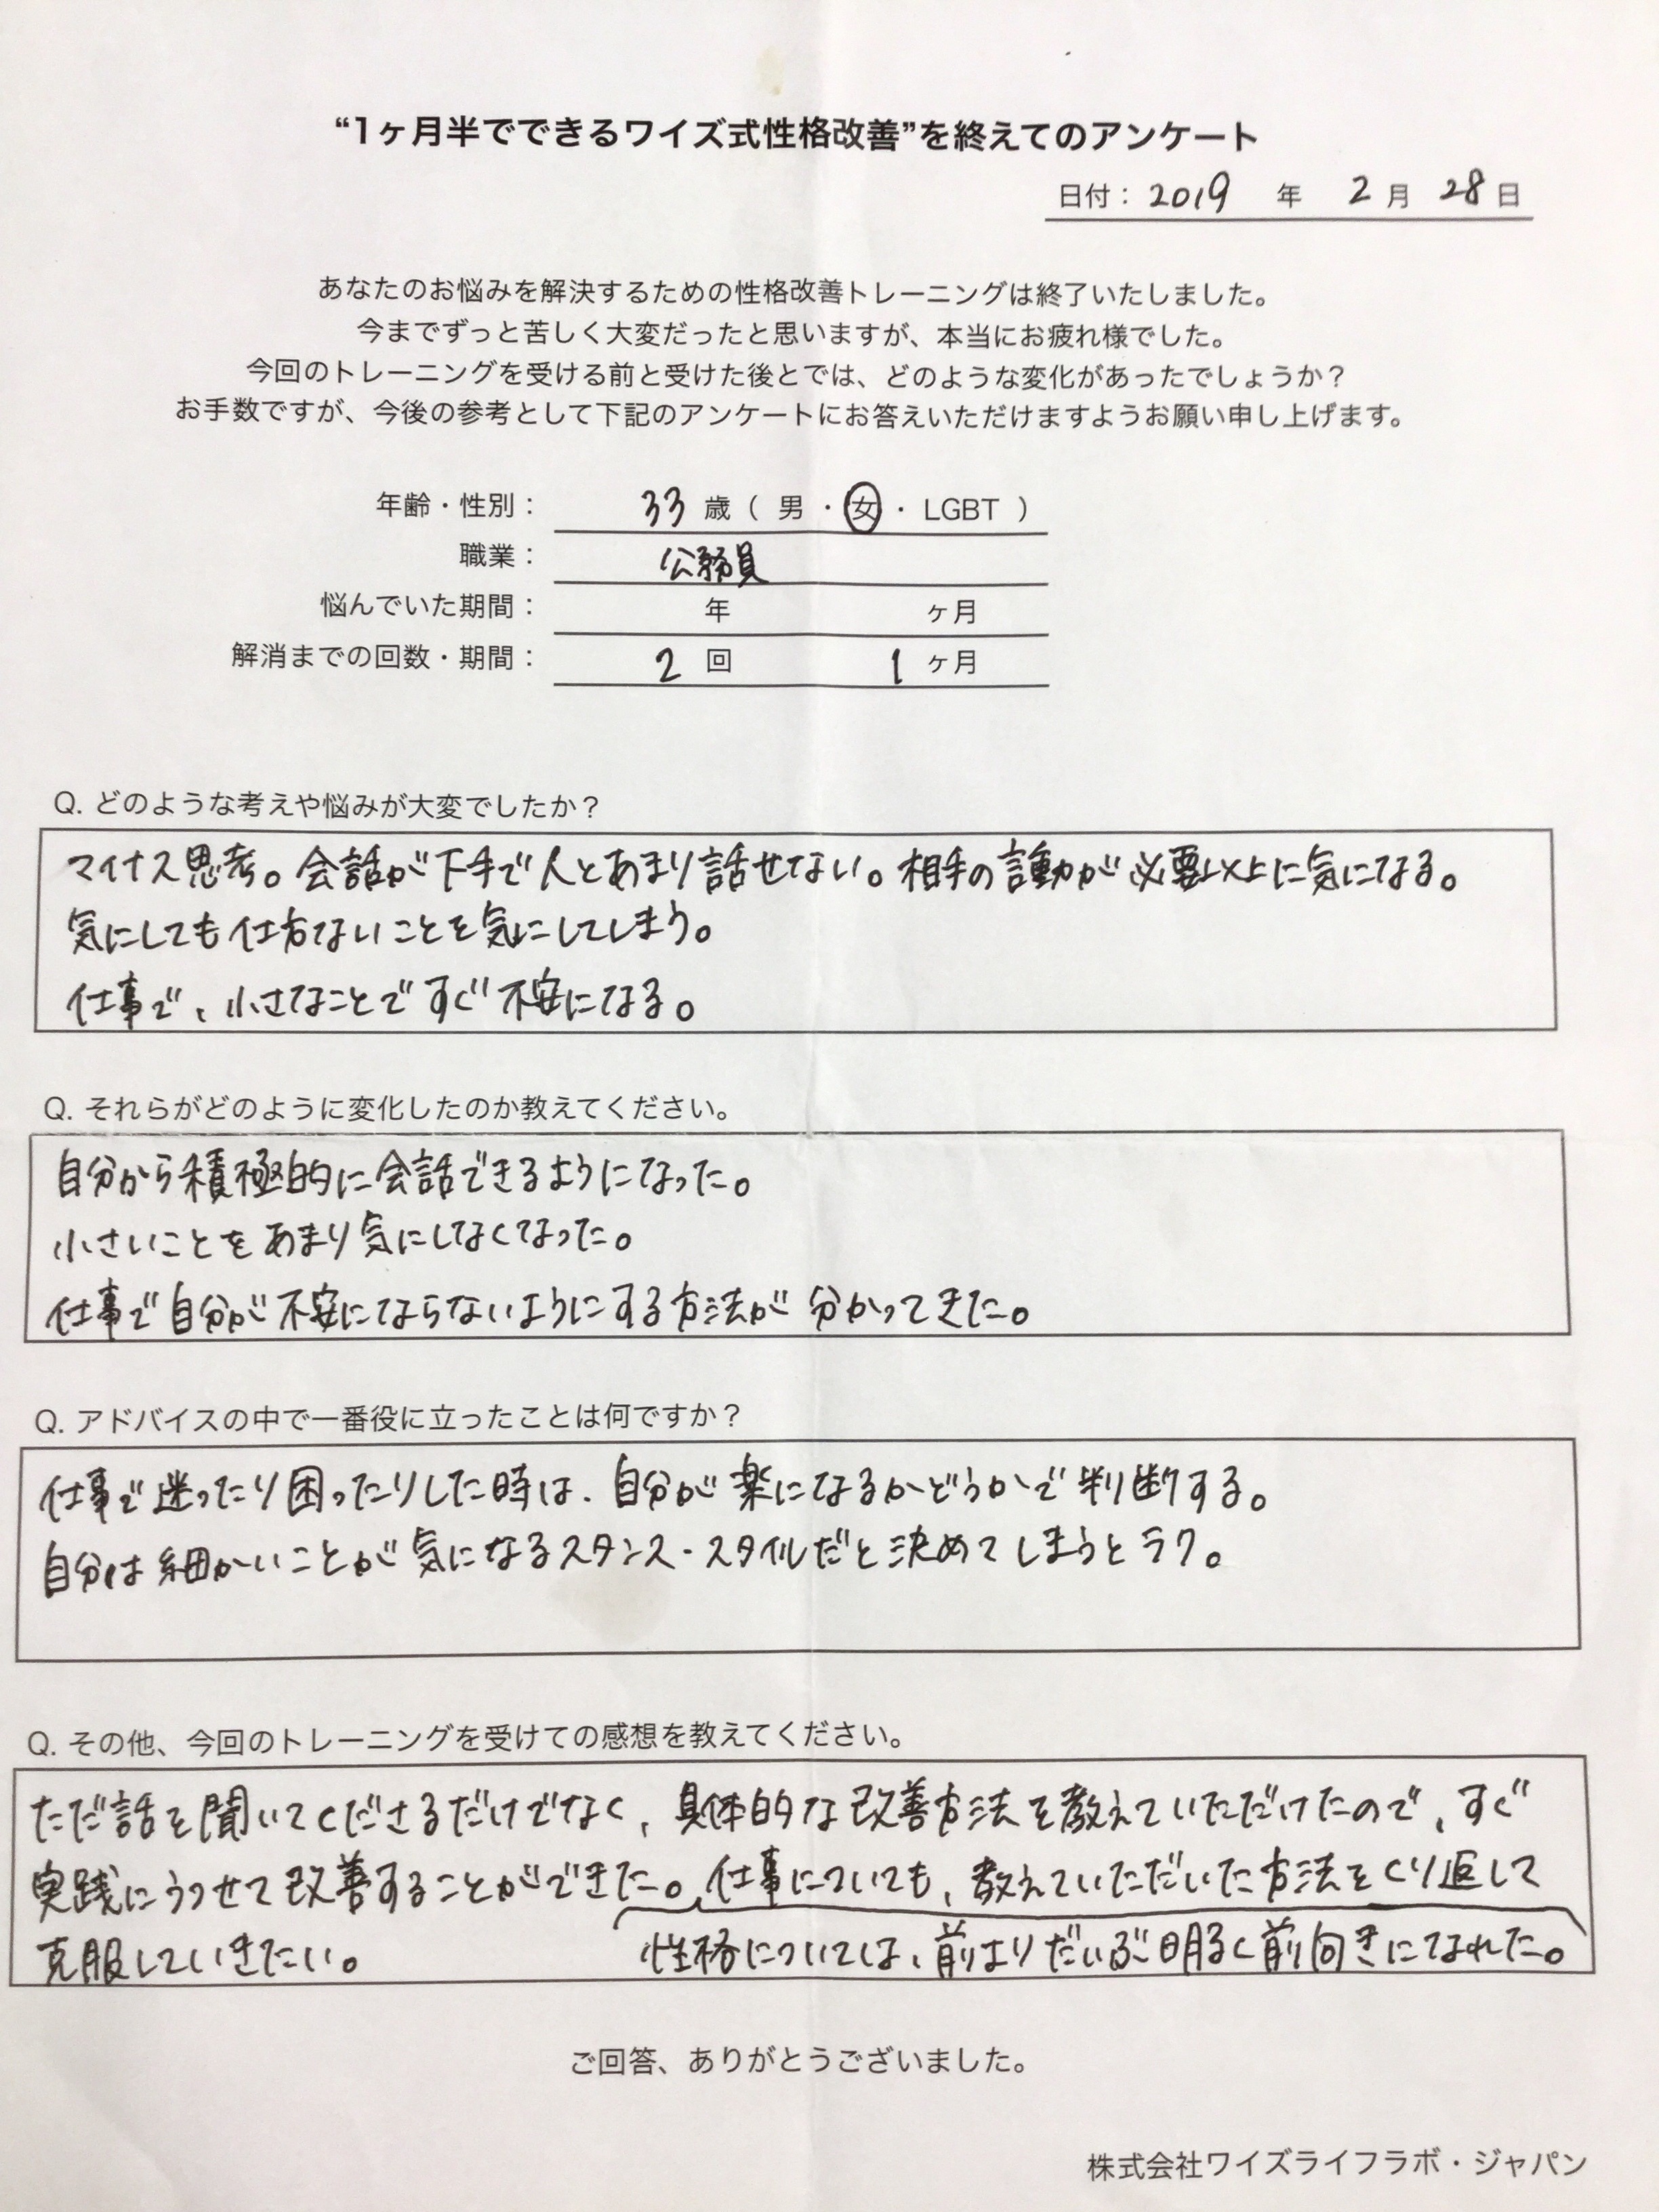 “1ヶ月半でできるワイズ式性格改善”を終えてのアンケート
日付： 2019 年 2 月 28 日
あなたのお悩みを解決するための性格改善トレーニングは終了いたしました。
今までずっと苦しく大変だったと思いますが、本当にお疲れ様でした。
今回のトレーニングを受ける前と受けた後とでは、どのような変化があったでしょうか？
お手数ですが、今後の参考として下記のアンケートにお答えいただけますようお願い申し上げます。
年齢・性別： 33 歳（ 男 ・ 女 ・ LGBT ）
職業： 公務員
悩んでいた期間： 年 ヶ月
解消までの回数・期間： 2 回 1 ヶ月
Q. どのような考えや悩みが大変でしたか？
マイナス思考。会話が下手で人とあまり話せない。相手の言動が必要以上に気になる。
気にしても仕方ないことを気にしてしまう。
仕事で、小さなことですぐ不安になる。
Q. それらがどのように変化したのか教えてください。
自分から積極的に会話できるようになった。
小さいことをあまり気にしなくなった。
仕事で自分が不安にならないようにする方法が分かってきた。
Q. アドバイスの中で一番役に立ったことは何ですか？
仕事で迷ったり困ったりした時は、自分が楽になるかどうかで判断する。
自分は細かいことが気になるスタンス・スタイルだと決めてしまうとラク。
Q. その他、今回のトレーニングを受けての感想を教えてください。
ただ話を聞いてくださるだけでなく、具体的な改善方法を教えていただけたので、すぐ
実践にうつせて改善することができた。仕事についても、教えていただいた方法をくり返して
克服していきたい。 性格については、前よりだいぶ明るく前向きになれた。
ご回答、ありがとうございました。
株式会社ワイズライフラボ・ジャパン